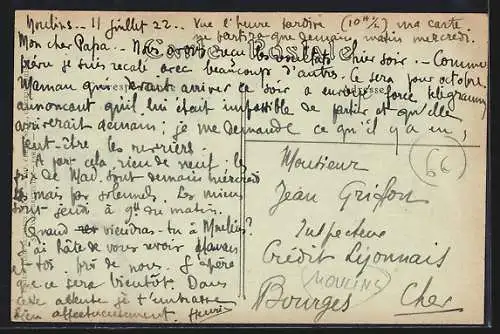 Moulins - 11 juillet 22 - Vue l'heure tardive (10H 1/2) ma carte
ne partira que demain matin mercredi.
Mon cher Papa - Nous avons reçu les resultats hier soir - Comme
je suis recalé avec beaucoup d'autres. Ce sera pour octobre.
Maman qui devant arriver ce soir a envoyé force télégrammes
annonçant qu'il lui était impossible de partir et qu'elle
arriverait demain; je me demande ce qu'il y a eu,
peut-être les
A part cela, rien de neuf. les
de Mad. sont demain mercredi
mais pas solennels. Les miens
sont jeudi à 9H du matin.
Quand viendras-tu à Moulins?
J'ai hâte de vous revoir
et toi près de nous. J'espère
que ce sera bientôt. Dans
cette attente je t'embrasse
bien affectueusement. Henri
Monsieur
Jean Griffon
Inspecteur
Crédit Lyonnais
Bourges Cher
66
MOULINS